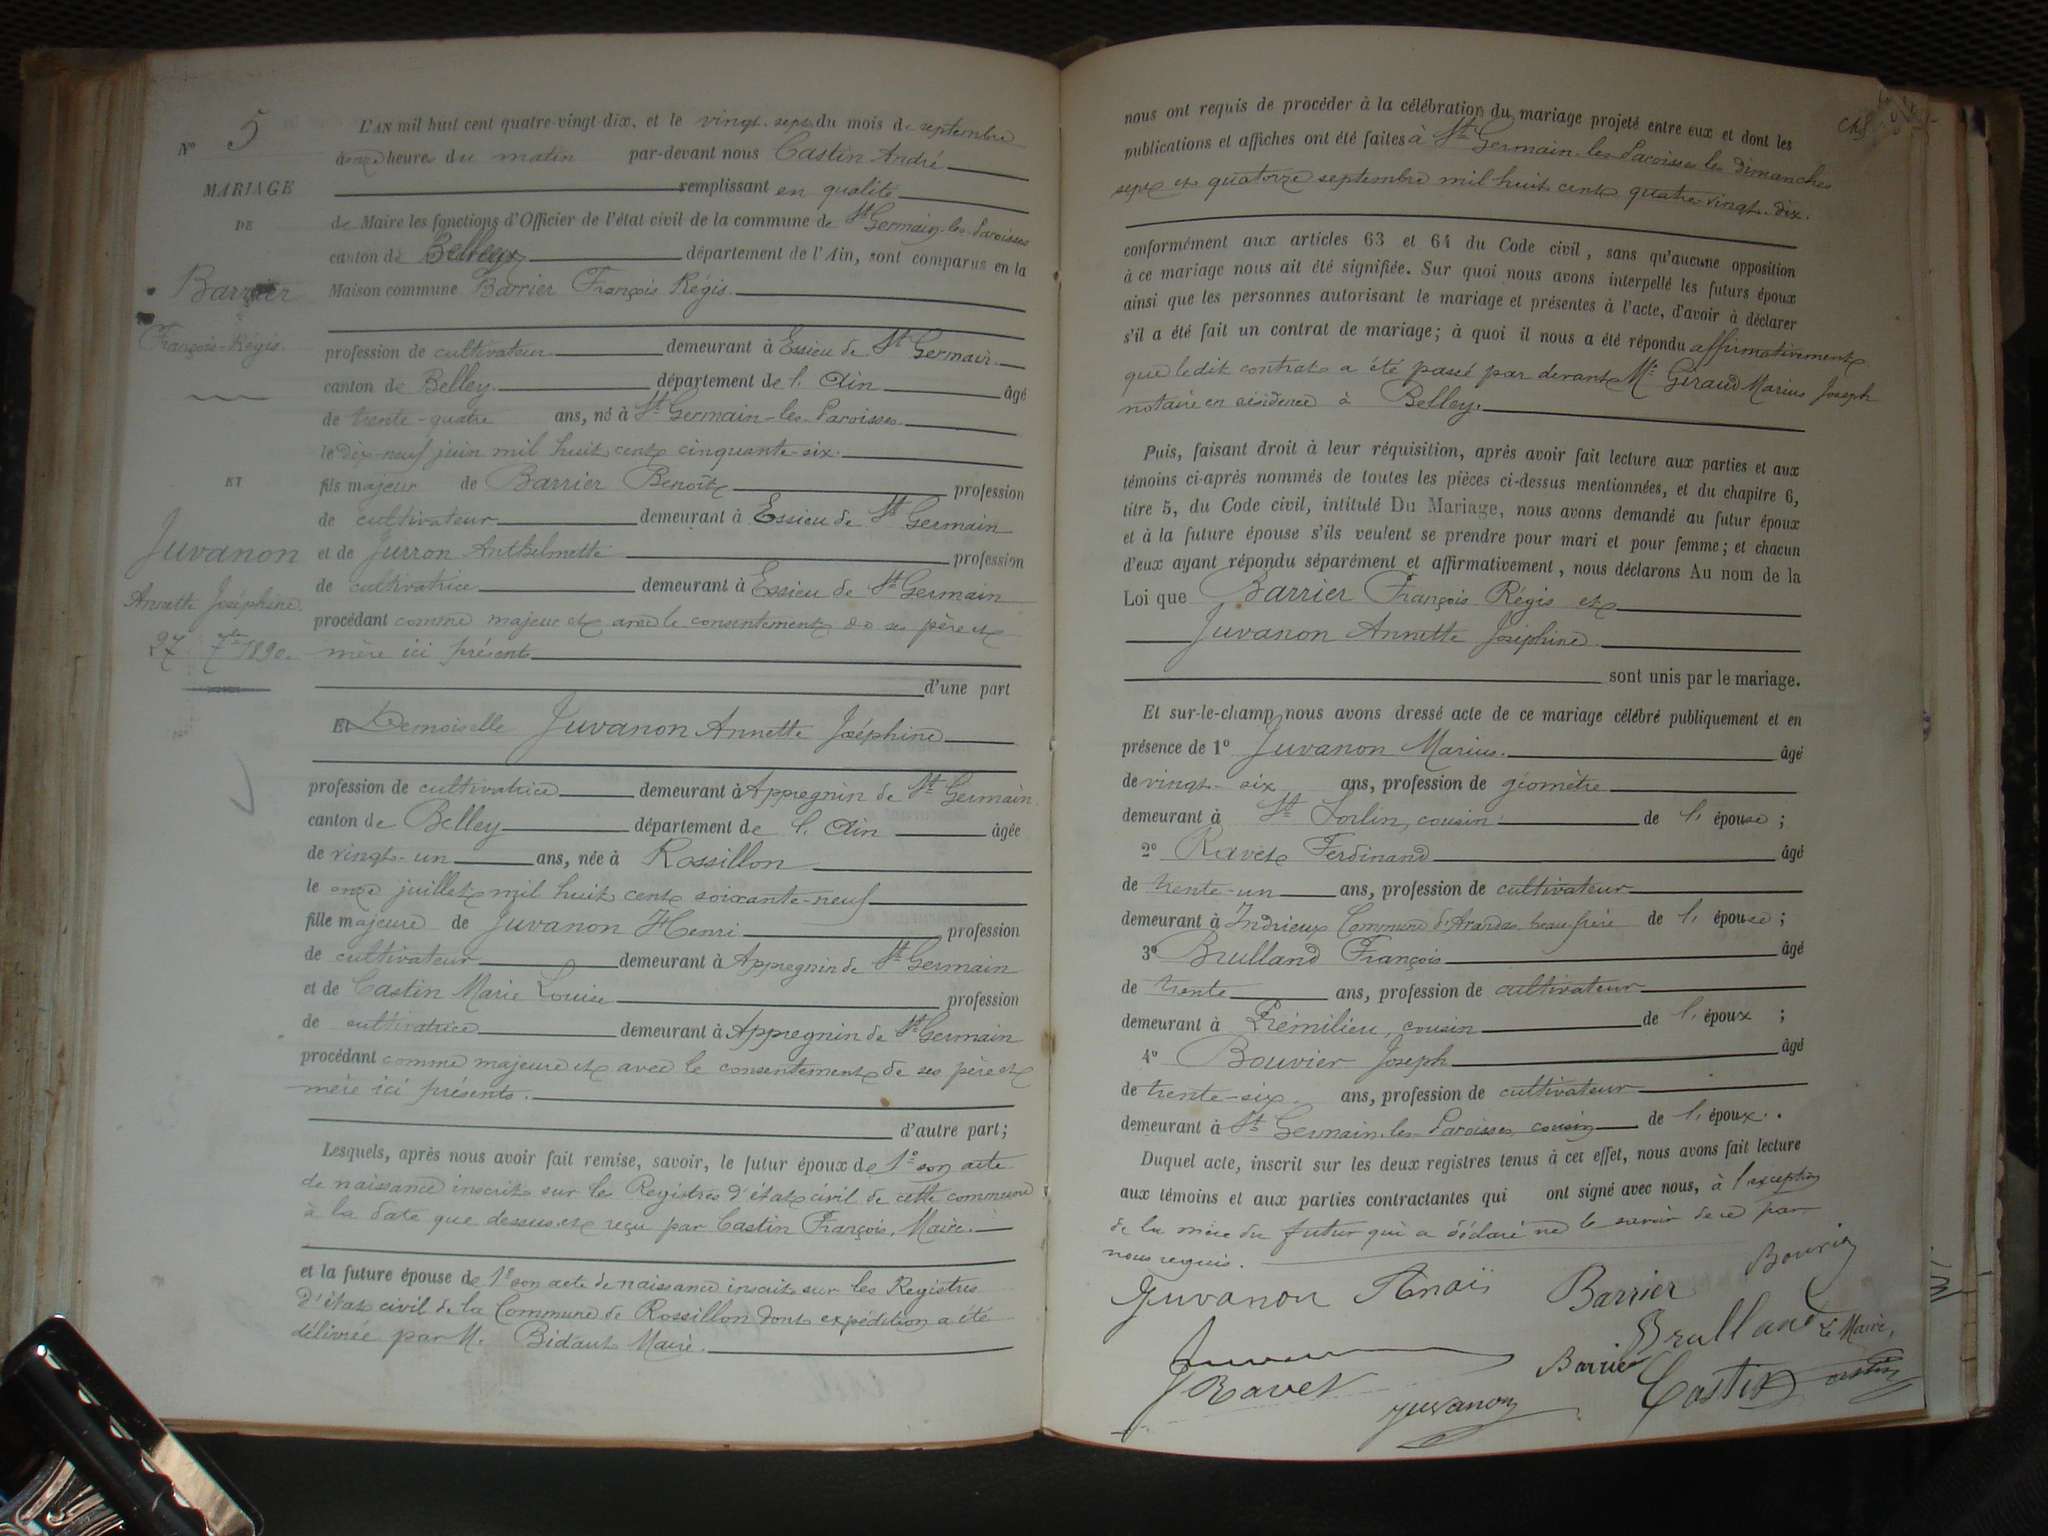 N° 5
MARIAGE
DE
Barrier
François-Régis.
ET
Juvanon
Annette Joséphine.
27 7bre 1890.
L'AN mil huit cent quatre-vingt-dix, et le vingt-sept du mois de septembre
heures du matin par-devant nous Castin André
remplissant en qualité
de Maire les fonctions d'Officier de l'état civil de la commune de St Germain-les-Paroisses
canton de Belley département de l'Ain, sont comparus en la
Maison commune Barrier François Régis.
profession de cultivateur demeurant à Essieu de St Germain.
canton de Belley. département de l'Ain âgé
de trente-quatre ans, né à St Germain-les-Paroisses.
le dix-neuf juin mil huit cent cinquante-six.
fils majeur de Barrier Benoît profession
de cultivateur demeurant à Essieu de St Germain
et de Jurron Anthelmette profession
de cultivatrice demeurant à Essieu de St Germain
procédant comme majeur et avec le consentement de ses père et
mère ici présents
d'une part
Et Demoiselle Juvanon Annette Joséphine
profession de cultivatrice demeurant à Appregnin de St Germain.
canton de Belley département de l'Ain âgée
de vingt-un ans, née à Rossillon
le onze juillet mil huit cent soixante-neuf
fille majeure de Juvanon Henri profession
de cultivateur demeurant à Appregnin de St Germain
et de Castin Marie Louise profession
de cultivatrice demeurant à Appregnin de St Germain
procédant comme majeure et avec le consentement de ses père et
mère ici présents.
d'autre part;
Lesquels, après nous avoir fait remise, savoir, le futur époux de 1° son acte
de naissance inscrit sur les Registres d'état civil de cette commune
à la date que dessus et reçu par Castin François, Maire.
et la future épouse de 1° son acte de naissance inscrit sur les Registres
d'état civil de la Commune de Rossillon dont expédition a été
délivrée par M. Bidaut Maire.
nous ont requis de procéder à la célébration du mariage projeté entre eux et dont les
publications et affiches ont été faites à St Germain-les-Paroisses les dimanches
sept et quatorze septembre mil huit cent quatre-vingt-dix.
conformément aux articles 63 et 64 du Code civil, sans qu'aucune opposition
à ce mariage nous ait été signifiée. Sur quoi nous avons interpellé les futurs époux
ainsi que les personnes autorisant le mariage et présentes à l'acte, d'avoir à déclarer
s'il a été fait un contrat de mariage; à quoi il nous a été répondu affirmativement
que le dit contrat a été passé par devant Me Giraud Marius Joseph
notaire en résidence à Belley.
Puis, faisant droit à leur réquisition, après avoir fait lecture aux parties et aux
témoins ci-après nommés de toutes les pièces ci-dessus mentionnées, et du chapitre 6,
titre 5, du Code civil, intitulé Du Mariage, nous avons demandé au futur époux
et à la future épouse s'ils veulent se prendre pour mari et pour femme; et chacun
d'eux ayant répondu séparément et affirmativement, nous déclarons Au nom de la
Loi que Barrier François Régis et
Juvanon Annette Joséphine.
sont unis par le mariage.
Et sur-le-champ nous avons dressé acte de ce mariage célébré publiquement et en
présence de 1° Juvanon Marius. âgé
de vingt-six ans, profession de géomètre
demeurant à St Sorlin, cousin de l'épouse;
2° Ravet Ferdinand âgé
de trente-un ans, profession de cultivateur
demeurant à Indrieux Commune d'Arandas beau frère de l'épouse;
3° Brulland François âgé
de trente ans, profession de cultivateur
demeurant à Prémilieu, cousin de l'époux;
4° Bouvier Joseph âgé
de trente-six. ans, profession de cultivateur
demeurant à St Germain-les-Paroisses, cousin de l'époux.
Duquel acte, inscrit sur les deux registres tenus à cet effet, nous avons fait lecture
aux témoins et aux parties contractantes qui ont signé avec nous, à l'exception
de la mère du futur qui a déclaré ne le savoir de ce par
nous requis.
Juvanon Anaïs Barrier Bouvier
Brulland Le Maire,
Barrier Castin
J Ravet Juvanon